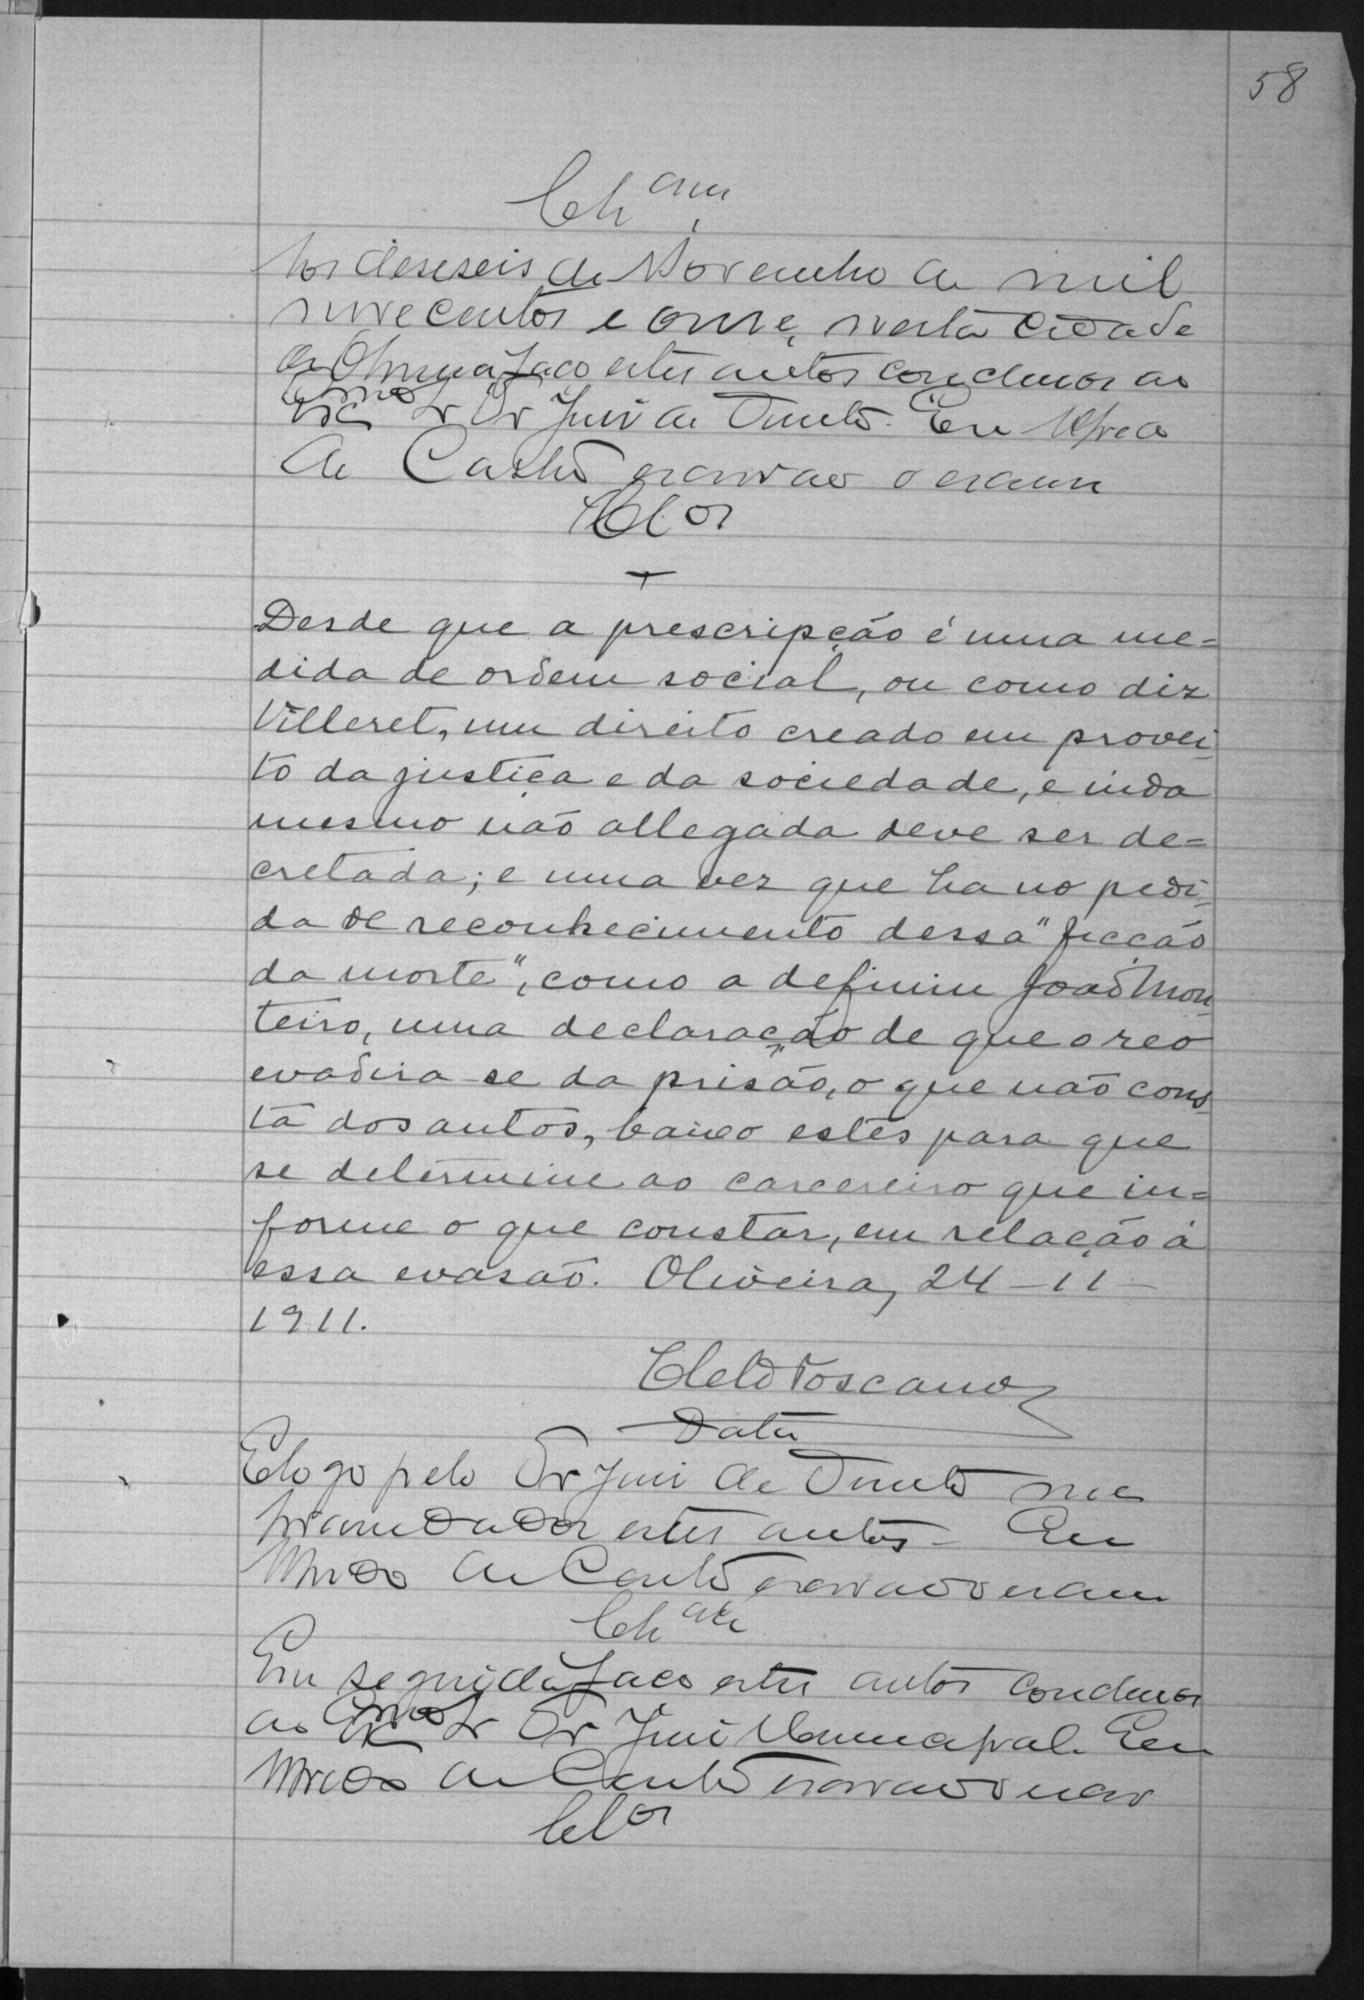 58
Cls am
Aos deseseis de Novembro de mil
nove centos e onze, nesta cidade
de Oliveira faço estes autos conclusos ao
Exmo Sr Dr Juiz de Direito. Eu
de Castro escrivão o escrevi
Clos
Desde que a prescripção é uma me=
dida de ordem social, ou como diz
Villeret, um direito creado em provei-
to da justiça e da sociedade, e inda
mesmo não allegada deve ser de=
cretada; e uma vez que ha no pedi-
do de reconhecimento dessa "ficção
da morte", como a definiu João Mon-
teiro, uma declaração de que o reo
evadira-se da prisão, o que não cons-
ta dos autos, baixo estes para que
se determine ao carcereiro que in=
forme o que constar, em relação á
essa evasão. Oliveira, 24-11-
1911.
Cleto Toscano
Data
E logo pelo Dr Juiz de Direito me
foram dados estes autos. Eu
de Castro escrivão o escrevi
Em seguida faço estes autos conclusos
ao Exmo Sr Dr Juiz Municipal. Eu
de Castro escrivão o escrevi
Clos